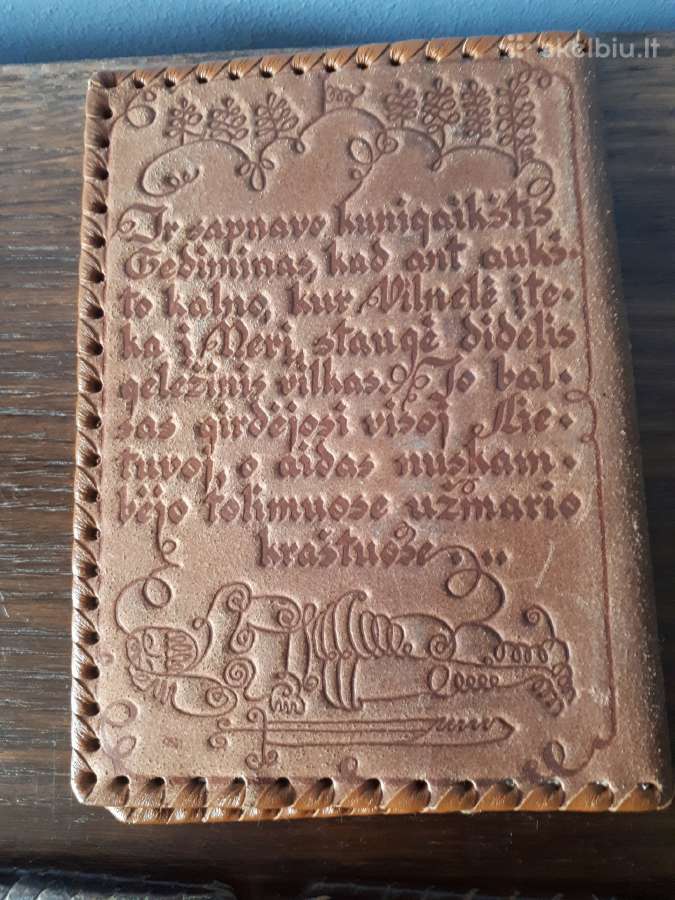 skelbiu.lt
Ir sapnavo kunigaikštis
Gediminas, kad ant aukš-
to kalno, kur Vilnelė įte-
ka į Nerį, staugė didelis
geležinis vilkas. Jo bal-
sas girdėjosi visoj Lie-
tuvoj, o aidas nuskam-
bėjo tolimuose užmario
kraštuose...